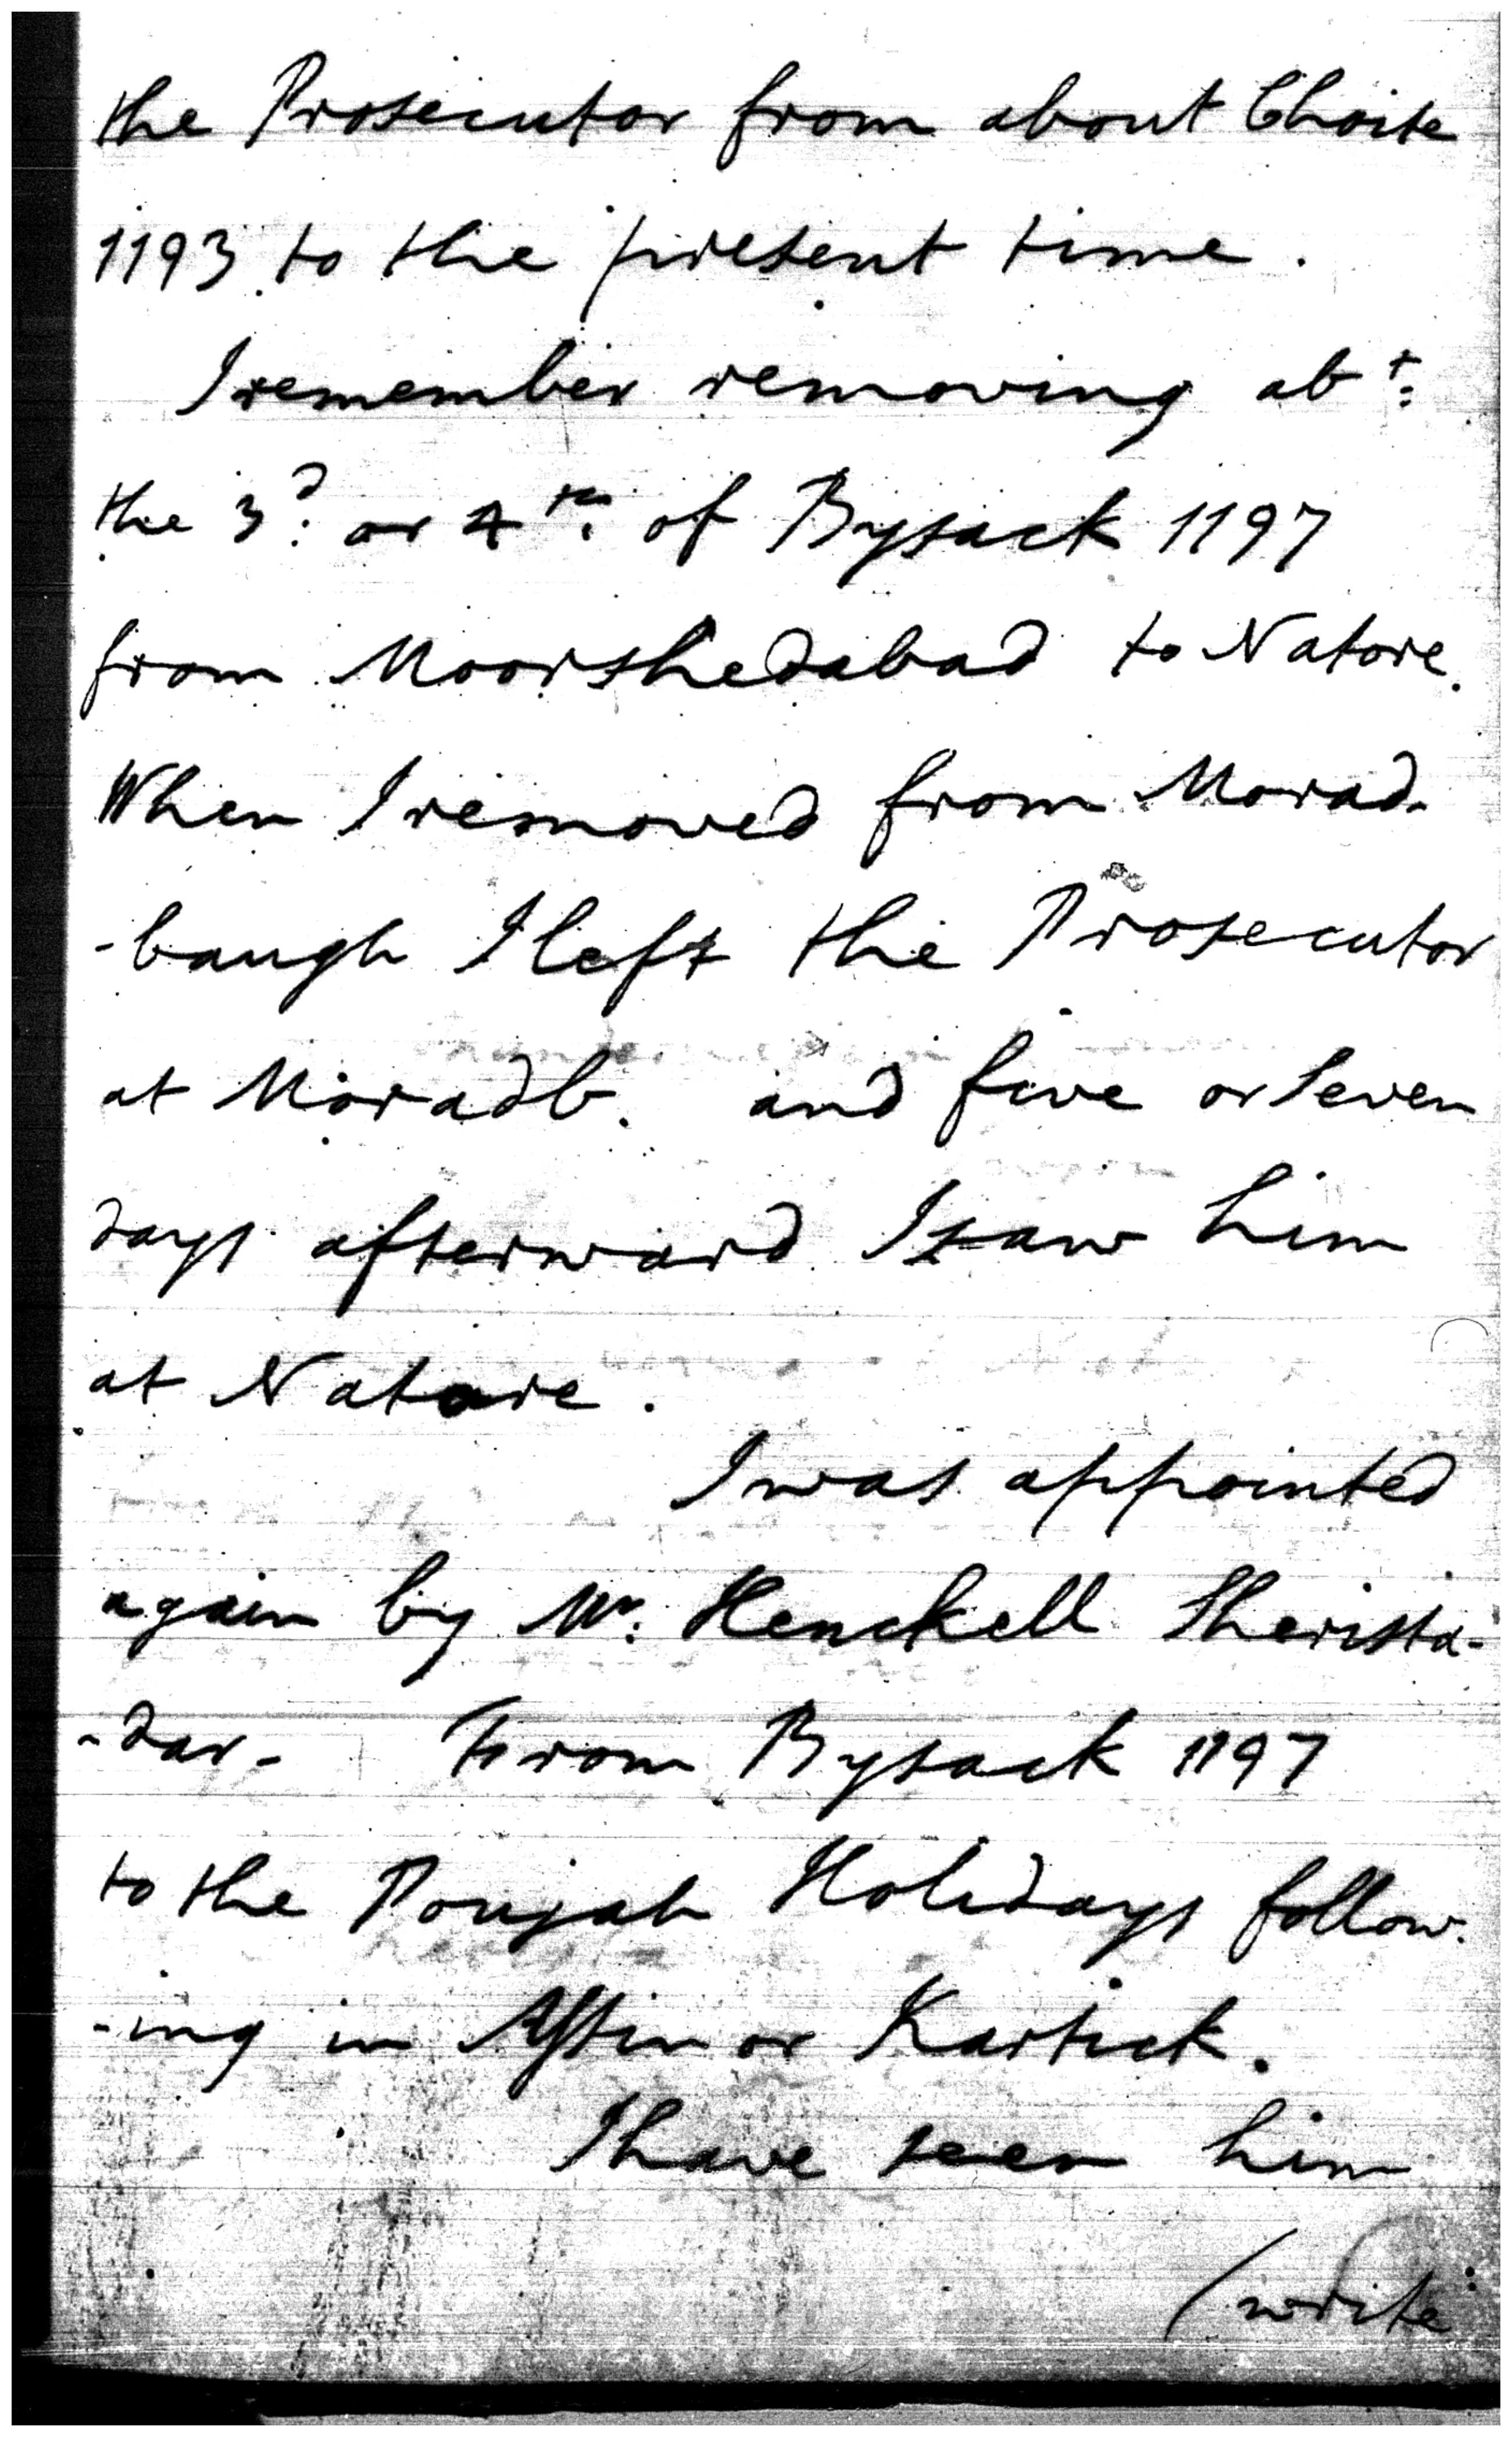 the Prosecutor from about Choite
1193 to the present time.
I remember removing abt:
the 3d: or 4th: of Bysack 1197
from Moorshedabad to Natore.
When I removed from Morad-
-baugh I left the Prosecutor
at Moradb. and five or seven
days afterward I saw him
at Natore.
I was appointed
again by Mr: Henckell Sherista-
-dar- From Bysack 1197
to the Poujah Holidays follow-
-ing in Assin or Kartick.
I have seen him
(write